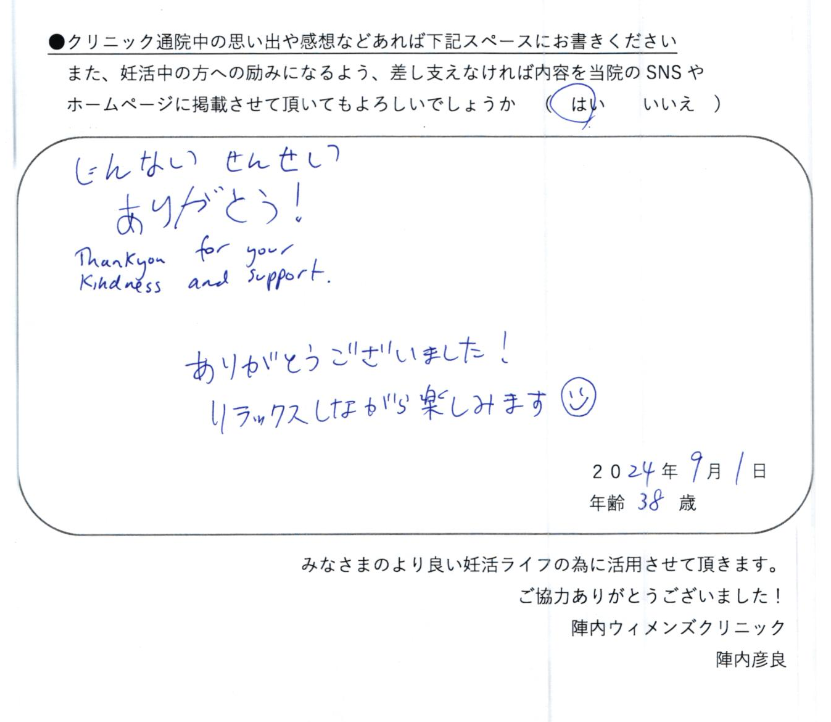 ●クリニック通院中の思い出や感想などあれば下記スペースにお書きください
また、妊活中の方への励みになるよう、差し支えなければ内容を当院の SNS や
ホームページに掲載させて頂いてもよろしいでしょうか （ はい いいえ ）
じんない せんせい
ありがとう！
Thankyou for your
Kindness and support.
ありがとうございました！
リラックスしながら楽しみます
2024年 9月 1日
年齢 38 歳
みなさまのより良い妊活ライフの為に活用させて頂きます。
ご協力ありがとうございました！
陣内ウィメンズクリニック
陣内彦良